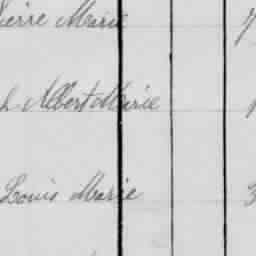 ierre Marie 7
h Albert Marie 1
Louis Marie 3